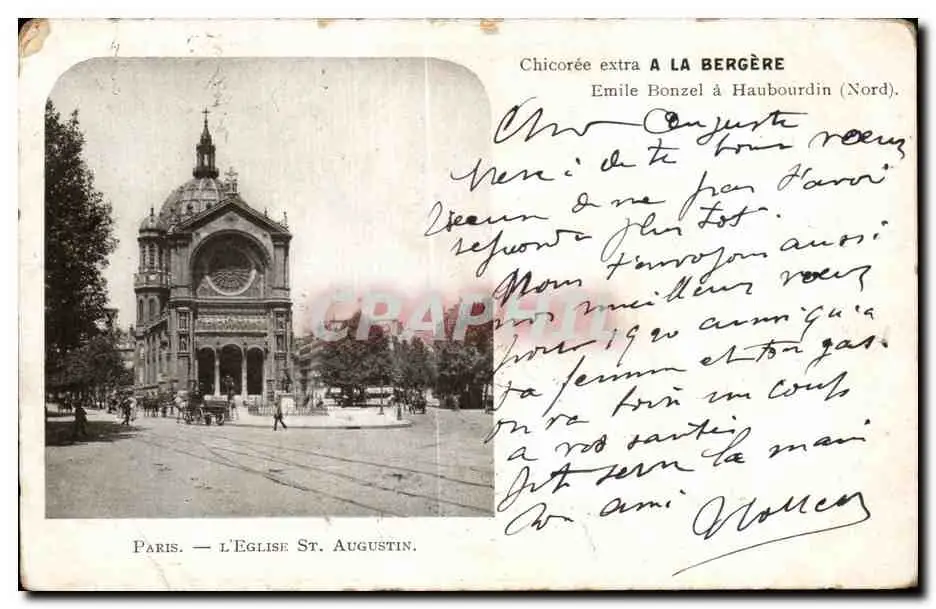 Chicorée extra A LA BERGÈRE
Emile Bonzel à Haubourdin (Nord).
Cher Auguste
Merci de tes bons vœux
de ne pas t'avoir
répondu plus tôt.
Nous t'envoyons aussi
nos meilleurs vœux
pour 1920 ainsi qu'a
ta femme et ton gas.
on va boire un coup
a vos santés
Je te serre la main
Ton ami
CRAPHI
PARIS. — L'EGLISE ST. AUGUSTIN.